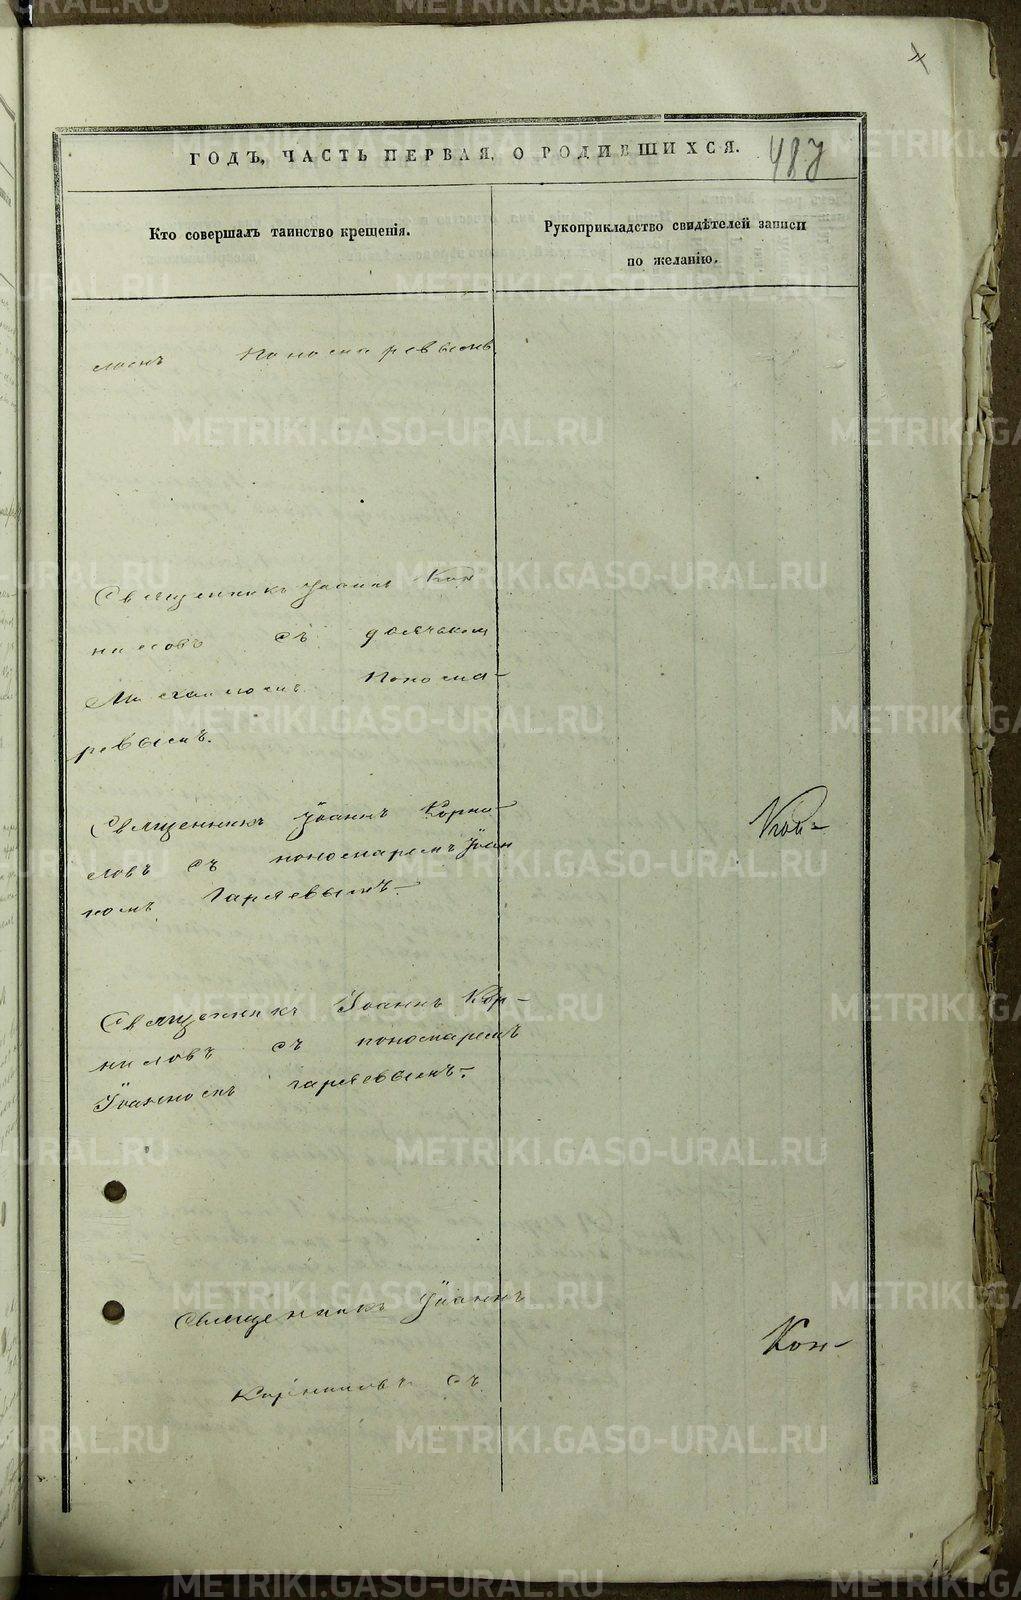 ГОДЪ, ЧАСТЬ ПЕРВАЯ, О РОДИВШИХСЯ. 487
Кто совершалъ таинство крещенія.
Рукоприкладство свидѣтелей записи
по желанію.
Пономаревымъ.
Священникъ Іоаннъ Кор
ниловъ съ дьячкомъ
Понома-
ревымъ.
Священникъ Іоаннъ Корни-
ловъ съ пономаремъ Іоан
номъ Гаряевымъ.-
Священникъ Іоаннъ Кор-
ниловъ съ пономаремъ
Іоанномъ Гаряевымъ.-
Священникъ Іоаннъ
Корниловъ съ
Кон-
METRIKI.GASO-URAL.RU